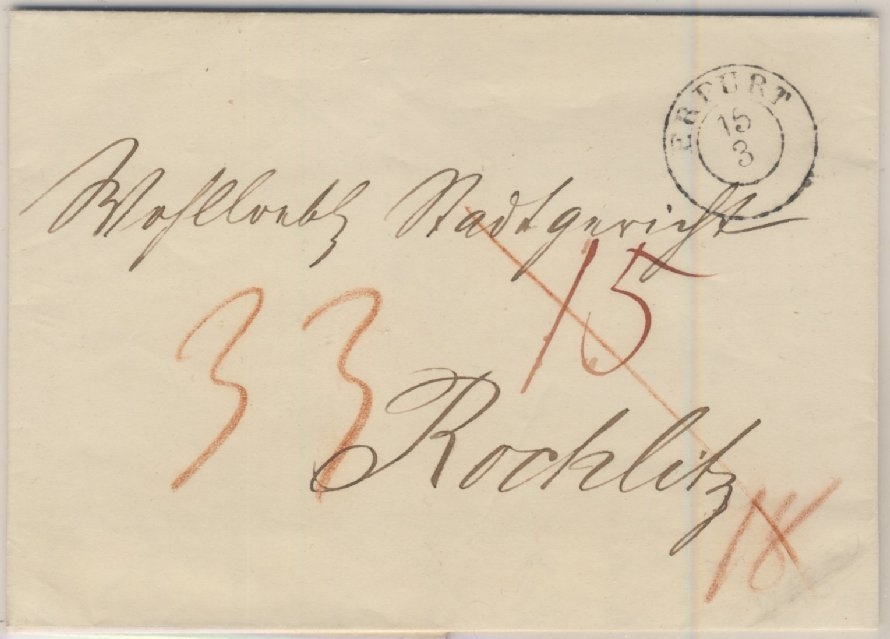 ERFURT
15
3
Wohllöbl Stadtgericht
15
33
Rochlitz
18